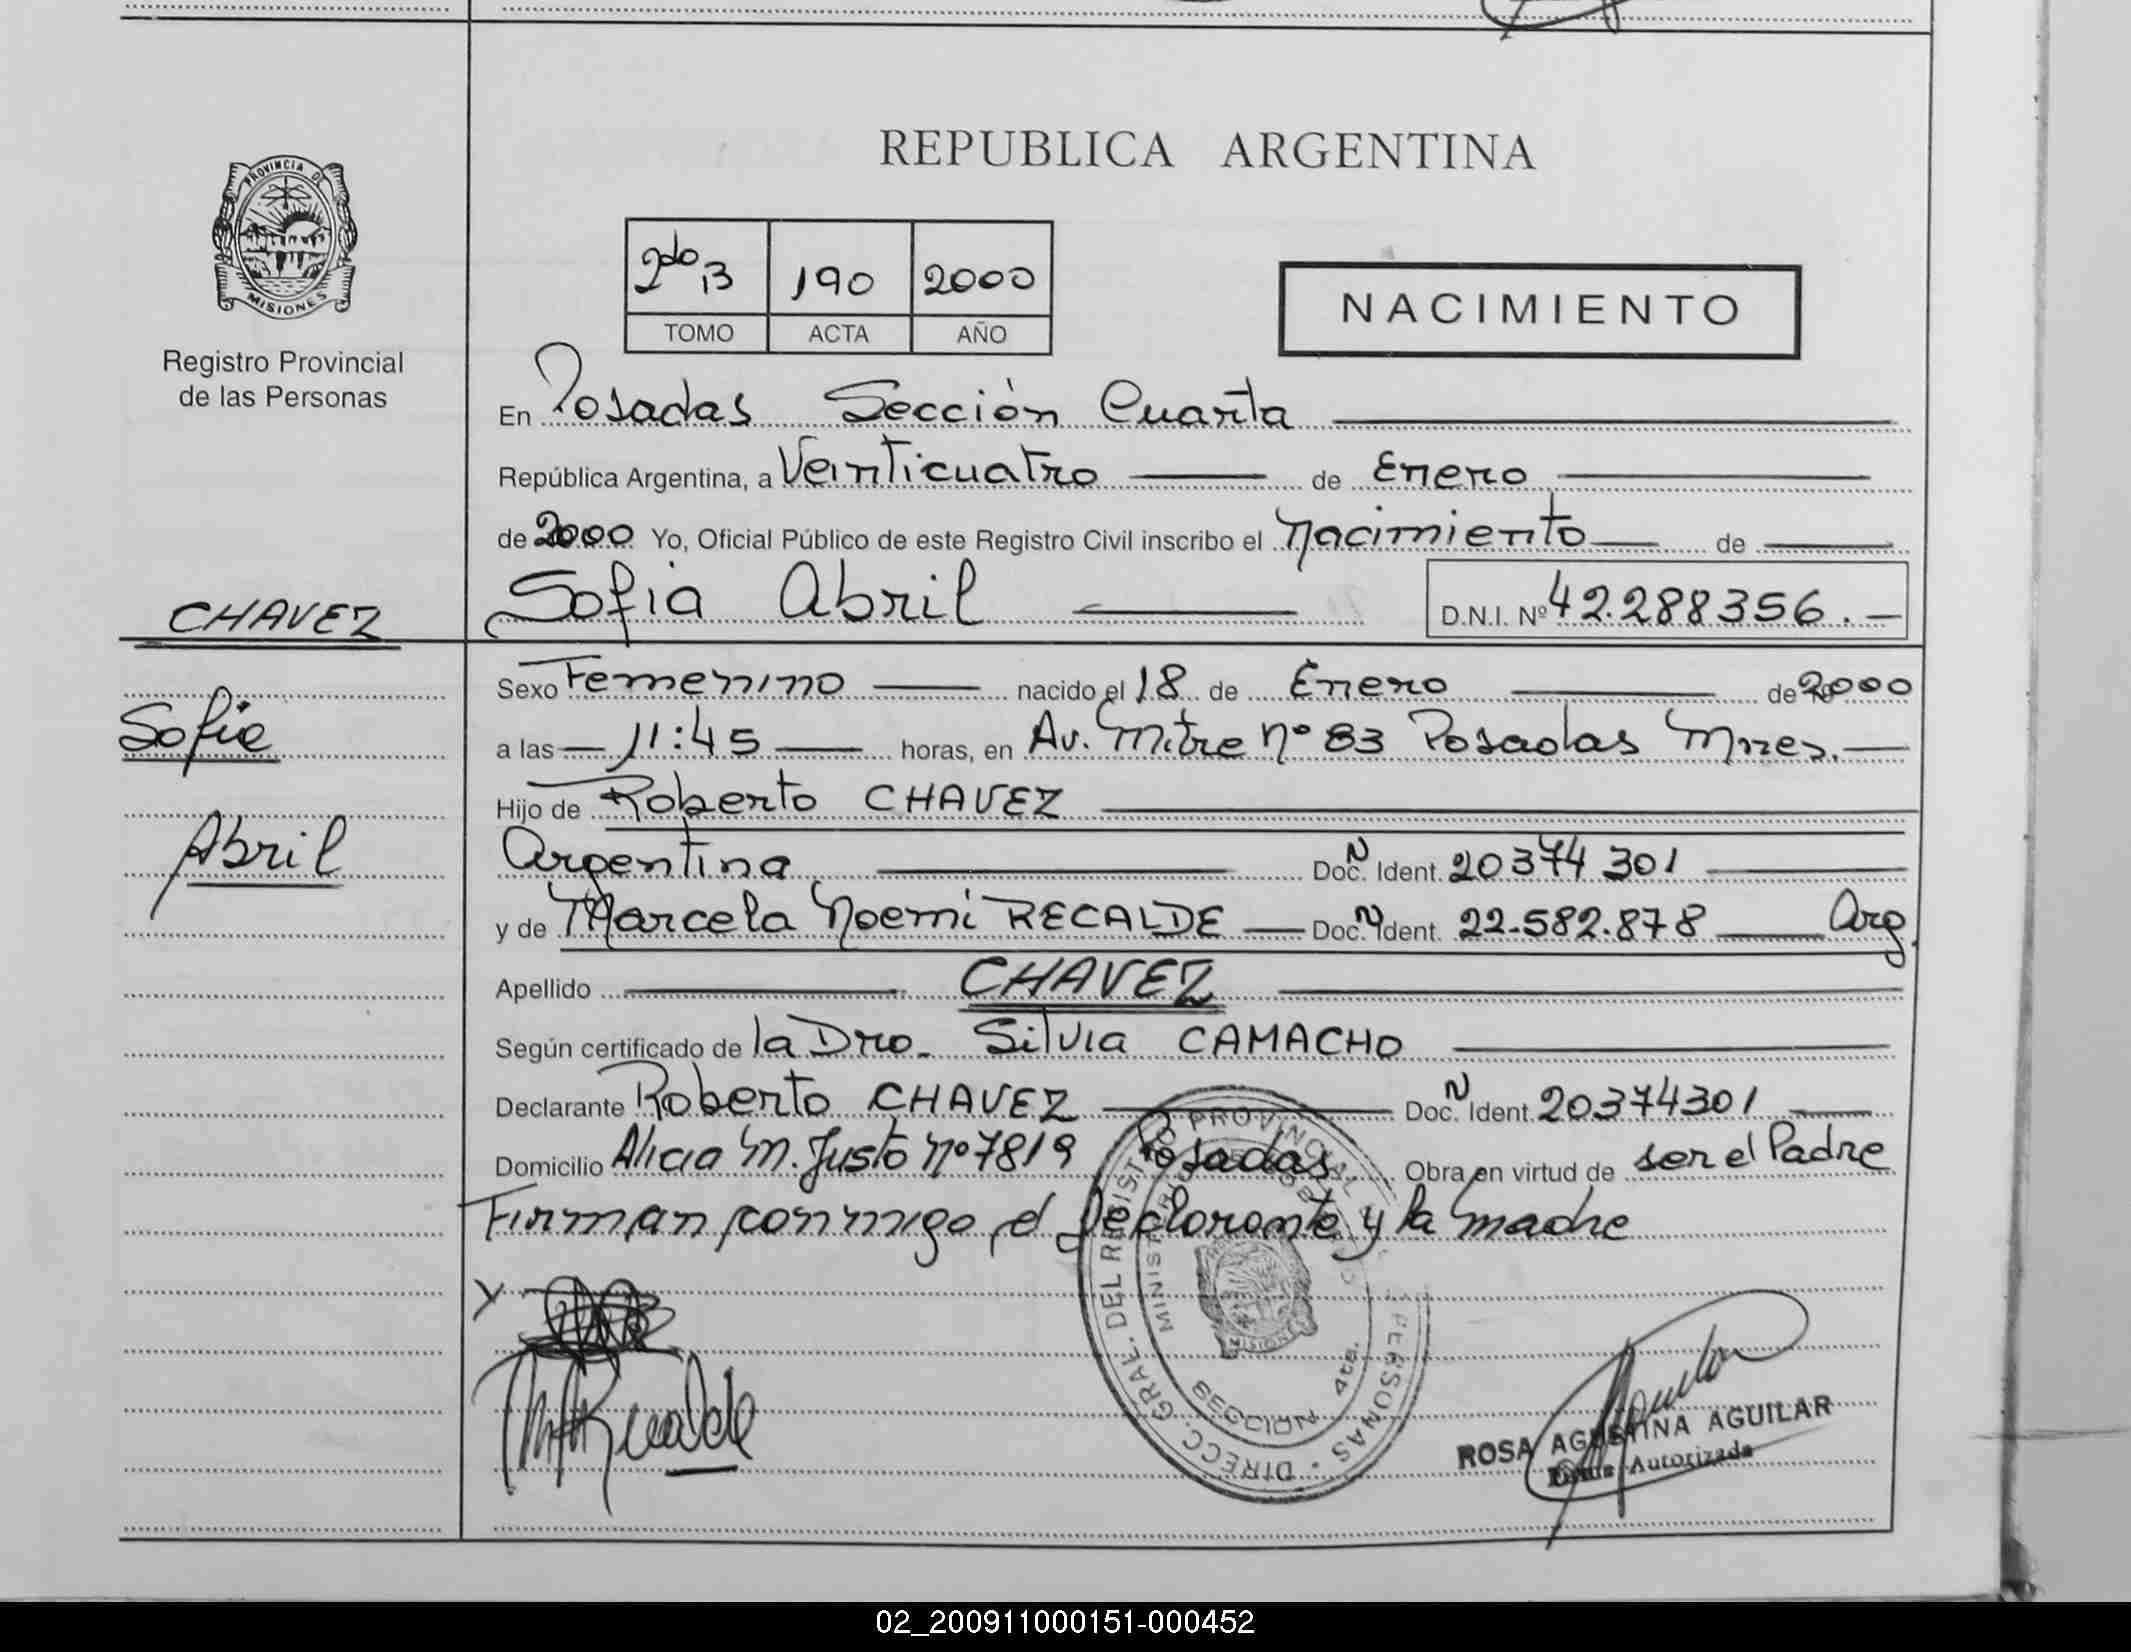 PROVINCIA DE
MISIONES
Registro Provincial
de las Personas
CHAVEZ
Sofia
Abril
REPUBLICA ARGENTINA
2do B 190 2000
TOMO ACTA AÑO
NACIMIENTO
En Posadas Sección Cuarta
República Argentina, a Veinticuatro de Enero
de 2000 Yo, Oficial Público de este Registro Civil inscribo el Nacimiento de
Sofia Abril D.N.I. Nº 42.288356.
Sexo Femenino nacido el 18 de Enero de 2000
a las 11:45 horas, en Av. Mitre nº 83 Posadas Mnes.
Hijo de Roberto CHAVEZ
Argentina Doc. N Ident. 20374301
y de Marcela Noemi RECALDE Doc. N Ident. 22.582.878 Arg.
Apellido CHAVEZ
Según certificado de la Dra. Silvia CAMACHO
Declarante Roberto CHAVEZ Doc. N Ident. 20374301
Domicilio Alicia M. Justo nº 7819 Posadas Obra en virtud de ser el Padre
Firman conmigo el Declarante y la madre
DIRECC. GRAL. DEL REGISTRO PROVINCIAL PERSONAS
SECCION 4ta.
ROSA AGUSTINA AGUILAR
Firma Autorizada
02_200911000151-000452